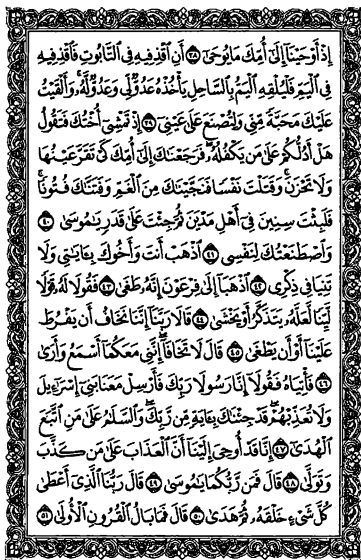 إِذۡ أَوۡحَيۡنَآ إِلَىٰٓ أُمِّكَ مَا يُوحَىٰٓ ٣٨ أَنِ ٱقۡذِفِيهِ فِي ٱلتَّابُوتِ فَٱقۡذِفِيهِ
فِي ٱلۡيَمِّ فَلۡيُلۡقِهِ ٱلۡيَمُّ بِٱلسَّاحِلِ يَأۡخُذۡهُ عَدُوّٞ لِّي وَعَدُوّٞ لَّهُۥۚ وَأَلۡقَيۡتُ
عَلَيۡكَ مَحَبَّةٗ مِّنِّي وَلِتُصۡنَعَ عَلَىٰ عَيۡنِيٓ ٣٩ إِذۡ تَمۡشِيٓ أُخۡتُكَ فَتَقُولُ
هَلۡ أَدُلُّكُمۡ عَلَىٰ مَن يَكۡفُلُهُۥۖ فَرَجَعۡنَٰكَ إِلَىٰٓ أُمِّكَ كَيۡ تَقَرَّ عَيۡنُهَا
وَلَا تَحۡزَنَۚ وَقَتَلۡتَ نَفۡسٗا فَنَجَّيۡنَٰكَ مِنَ ٱلۡغَمِّ وَفَتَنَّٰكَ فُتُونٗاۚ
فَلَبِثۡتَ سِنِينَ فِيٓ أَهۡلِ مَدۡيَنَ ثُمَّ جِئۡتَ عَلَىٰ قَدَرٖ يَٰمُوسَىٰ ٤٠
وَٱصۡطَنَعۡتُكَ لِنَفۡسِي ٤١ ٱذۡهَبۡ أَنتَ وَأَخُوكَ بِـَٔايَٰتِي وَلَا
تَنِيَا فِي ذِكۡرِي ٤٢ ٱذۡهَبَآ إِلَىٰ فِرۡعَوۡنَ إِنَّهُۥ طَغَىٰ ٤٣ فَقُولَا لَهُۥ قَوۡلٗا
لَّيِّنٗا لَّعَلَّهُۥ يَتَذَكَّرُ أَوۡ يَخۡشَىٰ ٤٤ قَالَا رَبَّنَآ إِنَّنَا نَخَافُ أَن يَفۡرُطَ
عَلَيۡنَآ أَوۡ أَن يَطۡغَىٰ ٤٥ قَالَ لَا تَخَافَآۖ إِنَّنِي مَعَكُمَآ أَسۡمَعُ وَأَرَىٰ
٤٦ فَأۡتِيَاهُ فَقُولَآ إِنَّا رَسُولَا رَبِّكَ فَأَرۡسِلۡ مَعَنَا بَنِيٓ إِسۡرَٰٓءِيلَ
وَلَا تُعَذِّبۡهُمۡۖ قَدۡ جِئۡنَٰكَ بِـَٔايَةٖ مِّن رَّبِّكَۖ وَٱلسَّلَٰمُ عَلَىٰ مَنِ ٱتَّبَعَ
ٱلۡهُدَىٰٓ ٤٧ إِنَّا قَدۡ أُوحِيَ إِلَيۡنَآ أَنَّ ٱلۡعَذَابَ عَلَىٰ مَن كَذَّبَ
وَتَوَلَّىٰ ٤٨ قَالَ فَمَن رَّبُّكُمَا يَٰمُوسَىٰ ٤٩ قَالَ رَبُّنَا ٱلَّذِيٓ أَعۡطَىٰ
كُلَّ شَيۡءٍ خَلۡقَهُۥ ثُمَّ هَدَىٰ ٥٠ قَالَ فَمَا بَالُ ٱلۡقُرُونِ ٱلۡأُولَىٰ ٥١